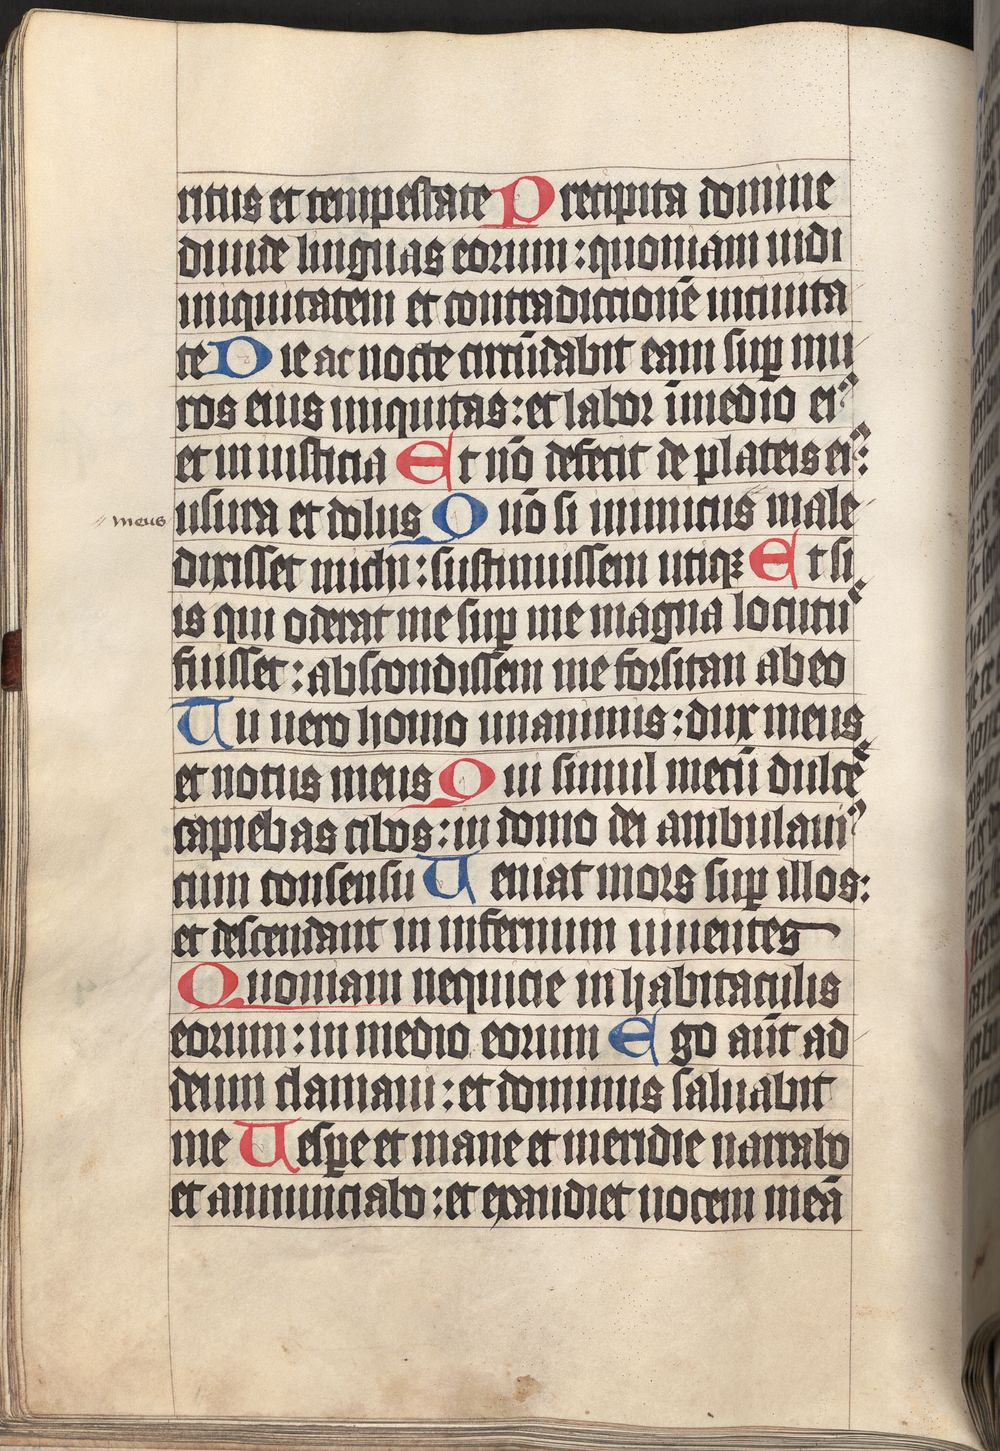 ritus et tempestate Precipita domine
diuide linguas eorum : quoniam uidi
iniquitatem et contradictionē in ciuita
te Die ac nocte circūdabit eam suꝑ mu
ros eius iniquitas : et labor ī medio ei⁹
et iniusticia Et nō defecit de plateis ei⁹ :
meus usura et dolus Qnō si inimicus male
dixisset michi : sustinuissem utiqꝫ Et si
is qui oderat me suꝑ me magna locutu⁹
fuisset : abscondissem me forsitan ab eo
Tu uero homo unanimis : dux meus
et notus meus Qui simul mecū dulce⁹
capiebas cibos : in domo dei ambulauim⁹
cum consensu Ueniat mors suꝑ illos :
et descendant in infernum uiuentes
Quoniam nequicie in habitaculis
eorum : in medio eorum Ego aūt ad
deum clamaui : et dominus saluabit
me Uesꝑe et mane et meridie narrabo
et annunciabo : et exaudiet uocem meā